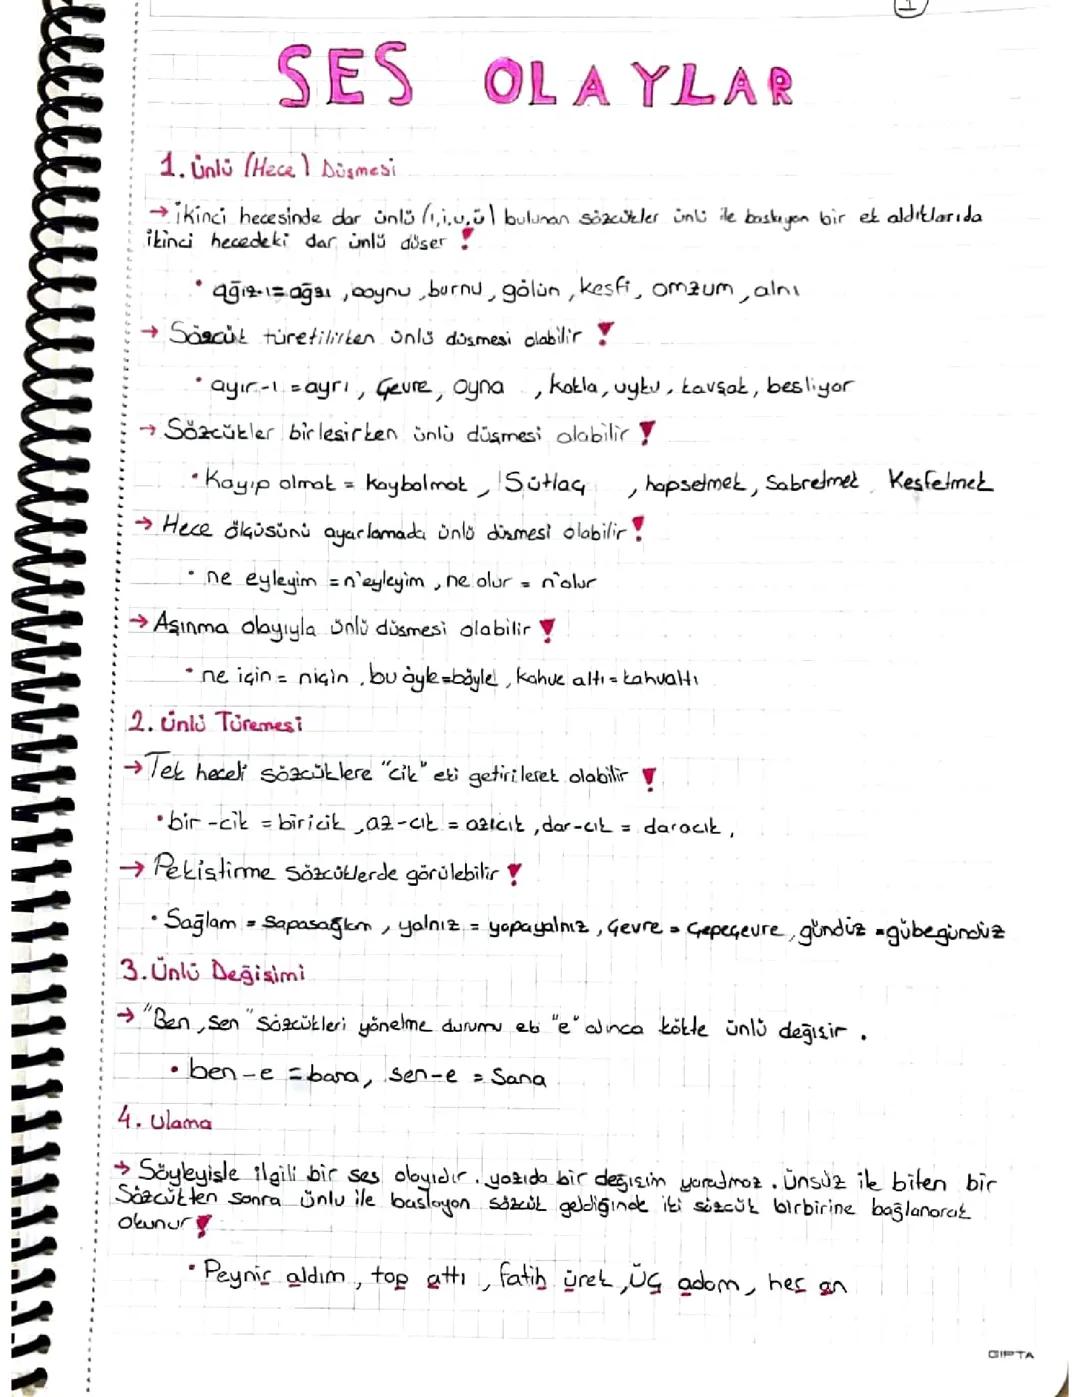 1
SES OLAYLAR
1. Ünlü (Hece) Düşmesi
→ İkinci hecesinde dar ünlü (ı,i,u,ü) bulunan sözcükler ünlü ile başlıyan bir ek aldıklarıda
ikinci hecedeki dar ünlü düşer !
• ağız-ı=ağzı, boynu, burnu, gölün, keşfi, omzum, alnı
→ Sözcük türetilirken ünlü düşmesi olabilir !
• ayır-ı = ayrı, Çevre, oyna, kokla, uyku, kavşak, besliyor
→ Sözcükler birleşirken ünlü düşmesi olabilir !
• Kayıp olmak = Kaybolmak, Sütlaç, hapsetmek, Sabretmek Keşfetmek
→ Hece ölçüsünü ayarlamada ünlü düşmesi olabilir !
• ne eyleyim = n'eyleyim, ne olur = n'olur
→ Aşınma olayıyla ünlü düşmesi olabilir !
• ne için = niçin, bu öyle=böyle, kahve altı = kahvaltı
2. Ünlü Türemesi
→ Tek heceli sözcüklere "cik" eki getirilerek olabilir !
• bir-cik = biricik, az-cık = azıcık, dar-cık = daracık,
→ Pekiştirme sözcüklerde görülebilir !
• Sağlam = Sapasağlam, yalnız = yapayalnız, Çevre = Çepeçevre, gündüz = güpegündüz
3. Ünlü Değişimi
→ "Ben, Sen" sözcükleri yönelme durumu eki "e" alınca kökte ünlü değişir.
• ben-e = bana, sen-e = Sana
4. Ulama
→ Söyleyişle ilgili bir ses olayıdır. yazıda bir değişim yaratmaz. Ünsüz ile biten bir
Sözcükten sonra ünlü ile başlayan sözcük geldiğinde iki sözcük birbirine bağlanarak
okunur !
• Peynir aldım, top attı, fatih ürek, Üç adam, her an
GIPTA